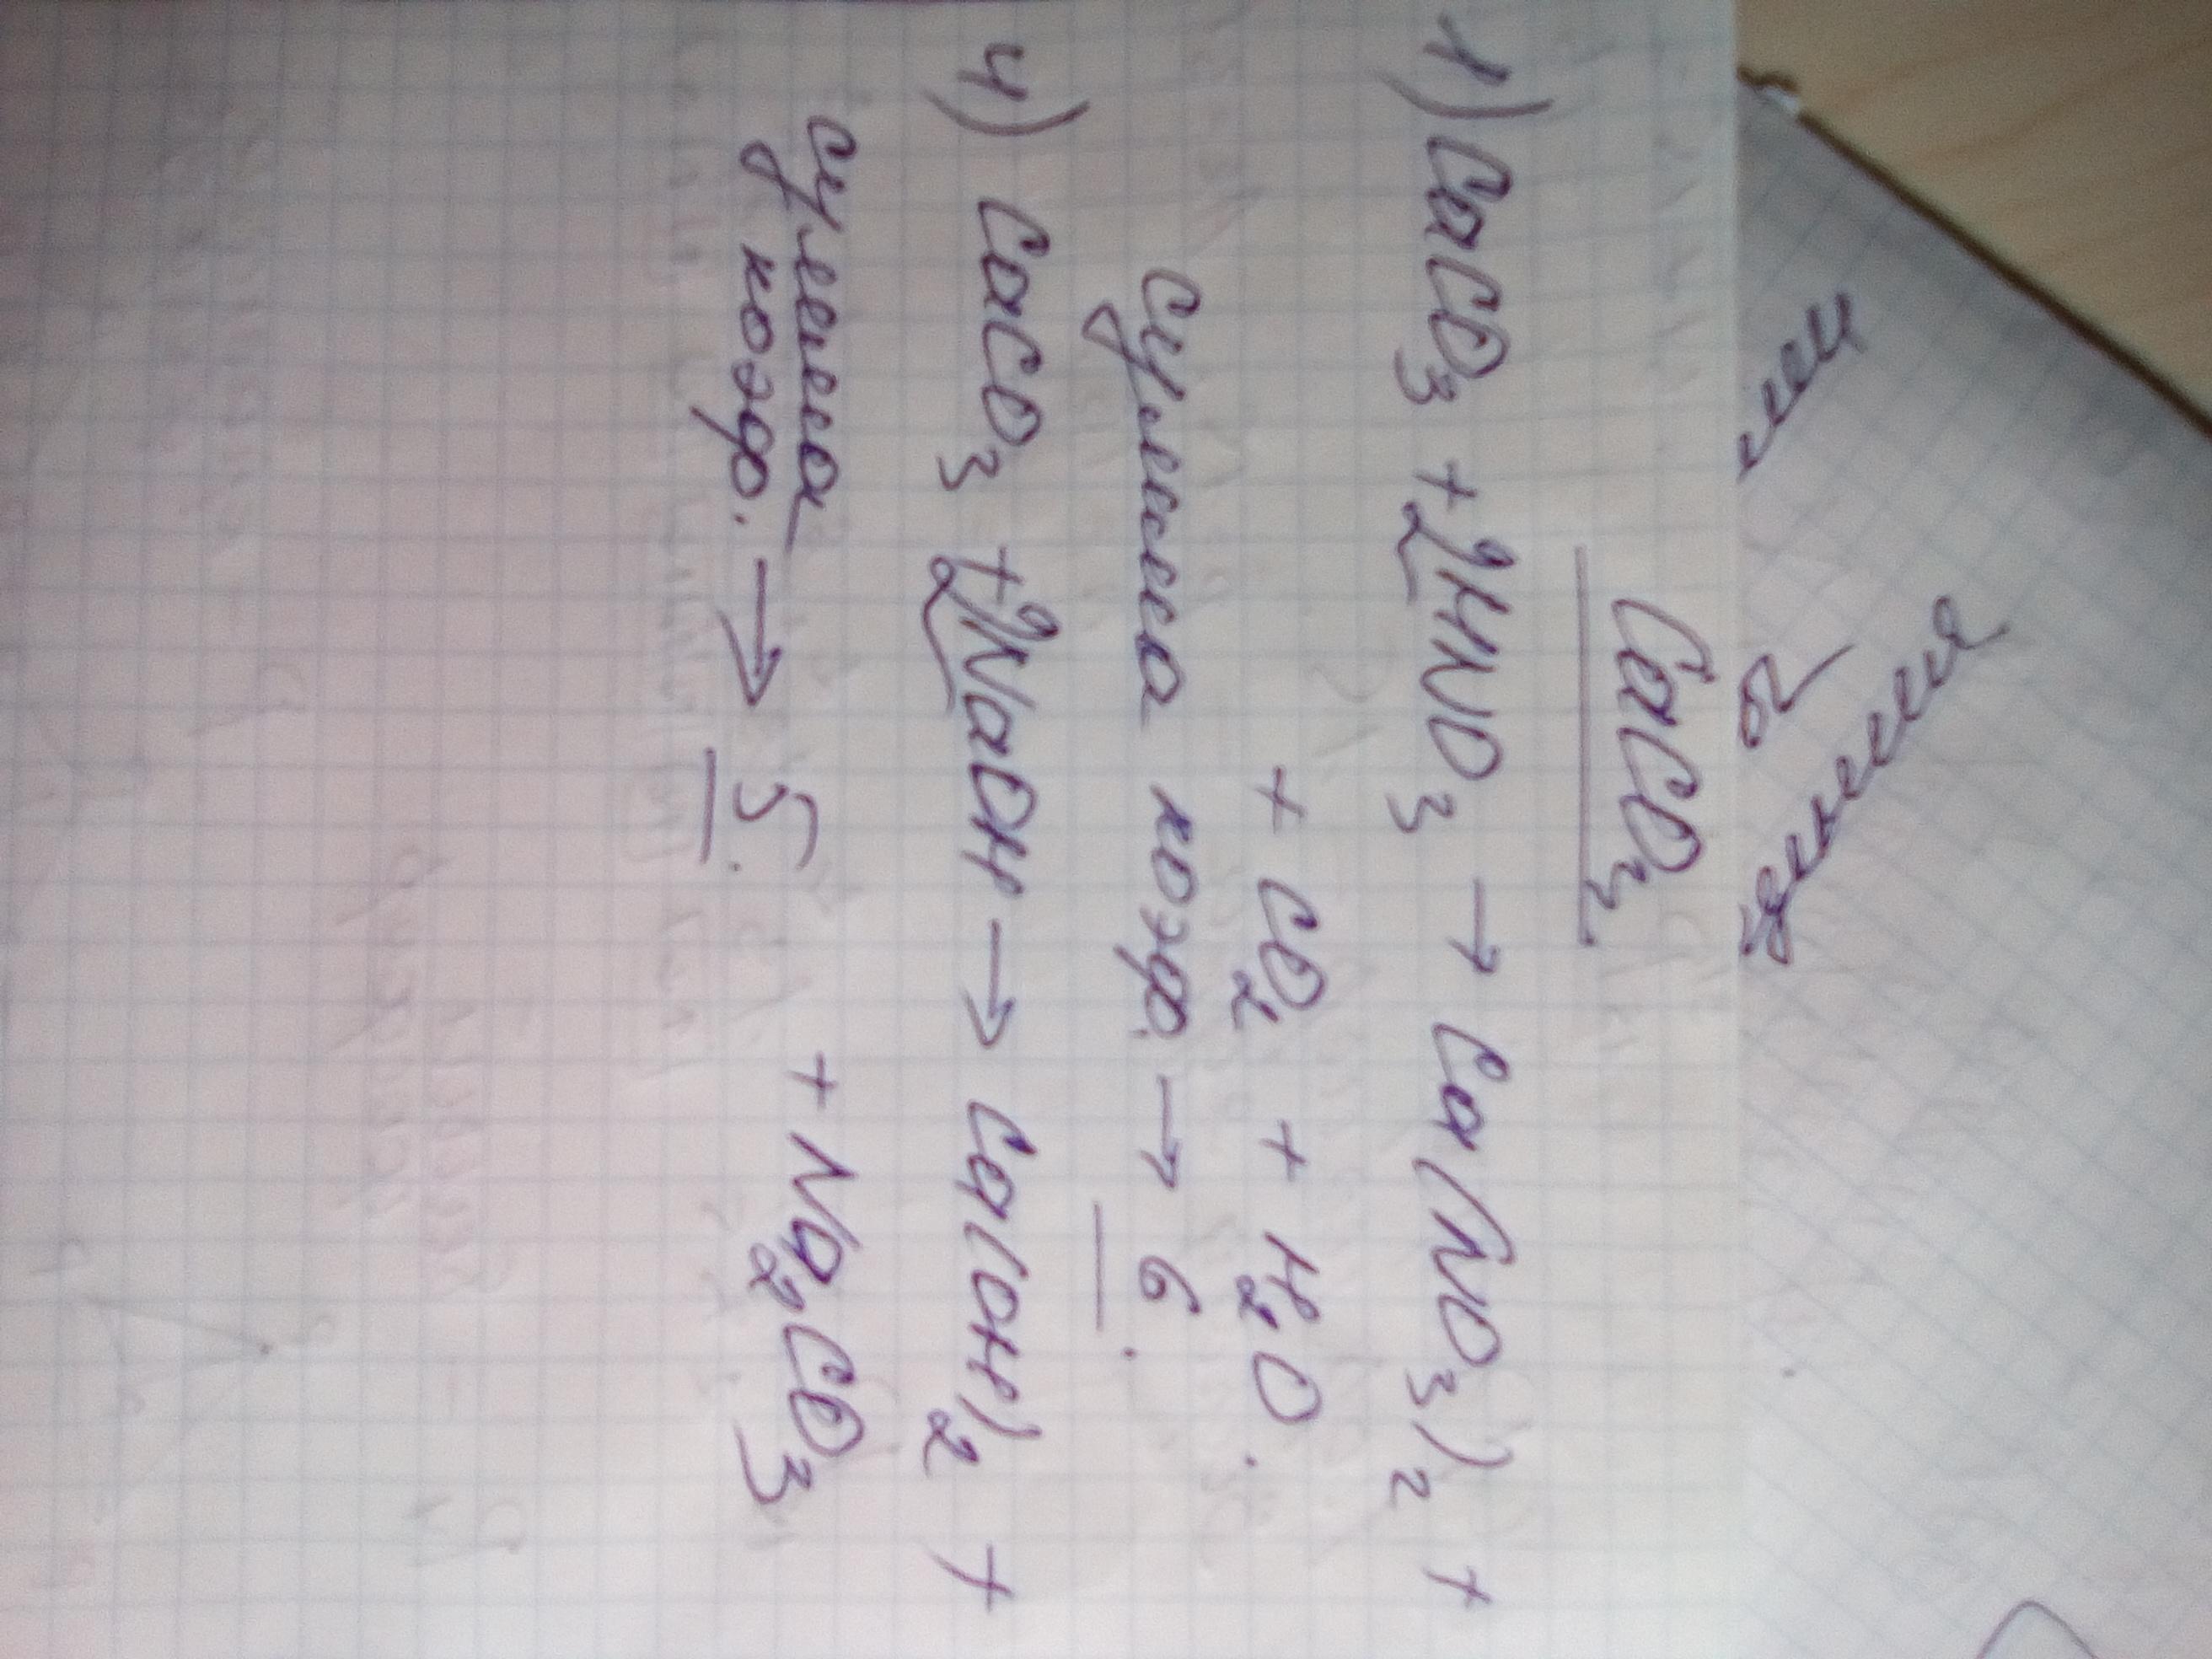 CaCO3
1) CaCO3 + 2HNO3 → Ca(NO3)2 +
+ CO2 + H2O.
Сумма коэф. → 6.
4) CaCO3 + 2NaOH → Ca(OH)2 +
+ Na2CO3
сумма
коэф. → 5.